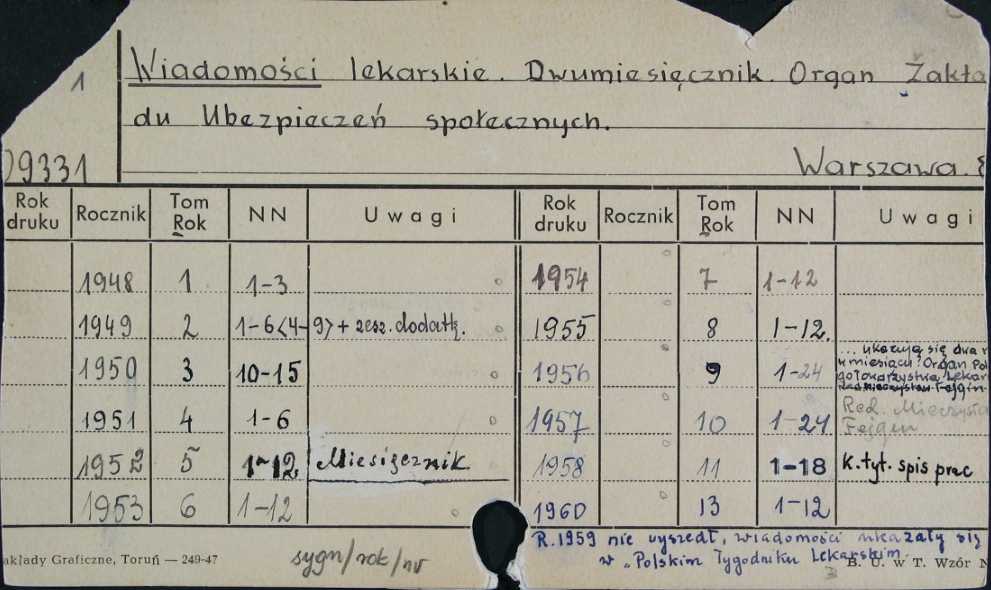 1
Wiadomości lekarskie. Dwumiesięcznik. Organ Zakła
du Ubezpieczeń społecznych.
09331 Warszawa.
Rok druku Rocznik Tom Rok NN Uwagi Rok druku Rocznik Tom Rok NN Uwagi
1948 1 1-3 1954 7 1-12
1949 2 1-6<4-9>+ zesz. dodatk. 1955 8 1-12.
1950 3 10-15 1956 9 1-24 ... ukazują się dwa r
w miesiącu. Organ Pol
go Towarzystwa Lekar
Red. Mieczysław Fejgin
1951 4 1-6 1957 10 1-24 Red. Mieczysła
Fejgin
1952 5 1-12 Miesięcznik 1958 11 1-18 K. tyt. spis prac
1953 6 1-12 1960 13 1-12
R. 1959 nie wyszedł, wiadomości ukazały się
w "Polskim Tygodniku Lekarskim."
akłady Graficzne, Toruń — 249-47 sygn/rok/nr B. U. w T. Wzór N